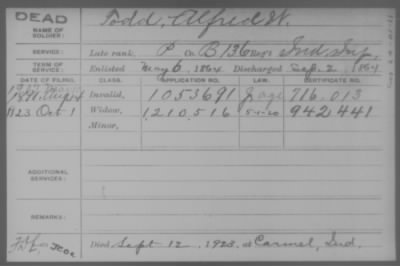 DEAD
Todd, Alfred W.
NAME OF SOLDIER:
SERVICE: Late rank, P Co. B 136 Reg't Ind. Inf.
TERM OF SERVICE: Enlisted May 6, 1864 Discharged Sep. 2 1864
DATE OF FILING. CLASS. APPLICATION NO. LAW. CERTIFICATE NO.
Invalid, 1053691 716.013
1923 Oct 1 Widow, 1,210,516 5-1-20 942441
Minor,
ADDITIONAL SERVICES:
REMARKS:
Died Sept 12, 1923, at Carmel, Ind.